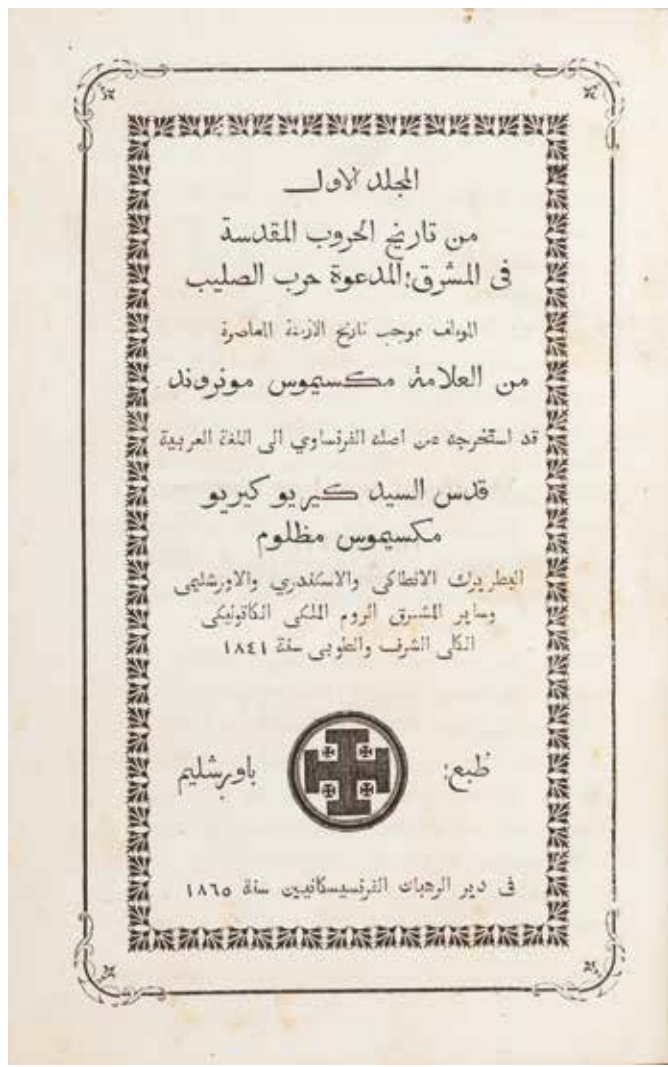 المجلد الاول
من تاريخ الحروب المقدسة
فى المشرق؛ المدعوة حرب الصليب
المولف بموجب تاريخ الازمنة المعاصرة
من العلامة مكسيموس مونروند
قد استخرجه من اصله الفرنساوي الى اللغة العربية
قدس السيد كيريو كيريو
مكسيموس مظلوم
البطريرك الانطاكى والاسكندري والاورشليمى
وساير المشرق الروم الملكى الكاتوليكى
الكلى الشرف والطوبى سنة ١٨٤١
طبع: باورشليم
فى دير الرهبان الفرنسيسكانيين سنة ١٨٦٥